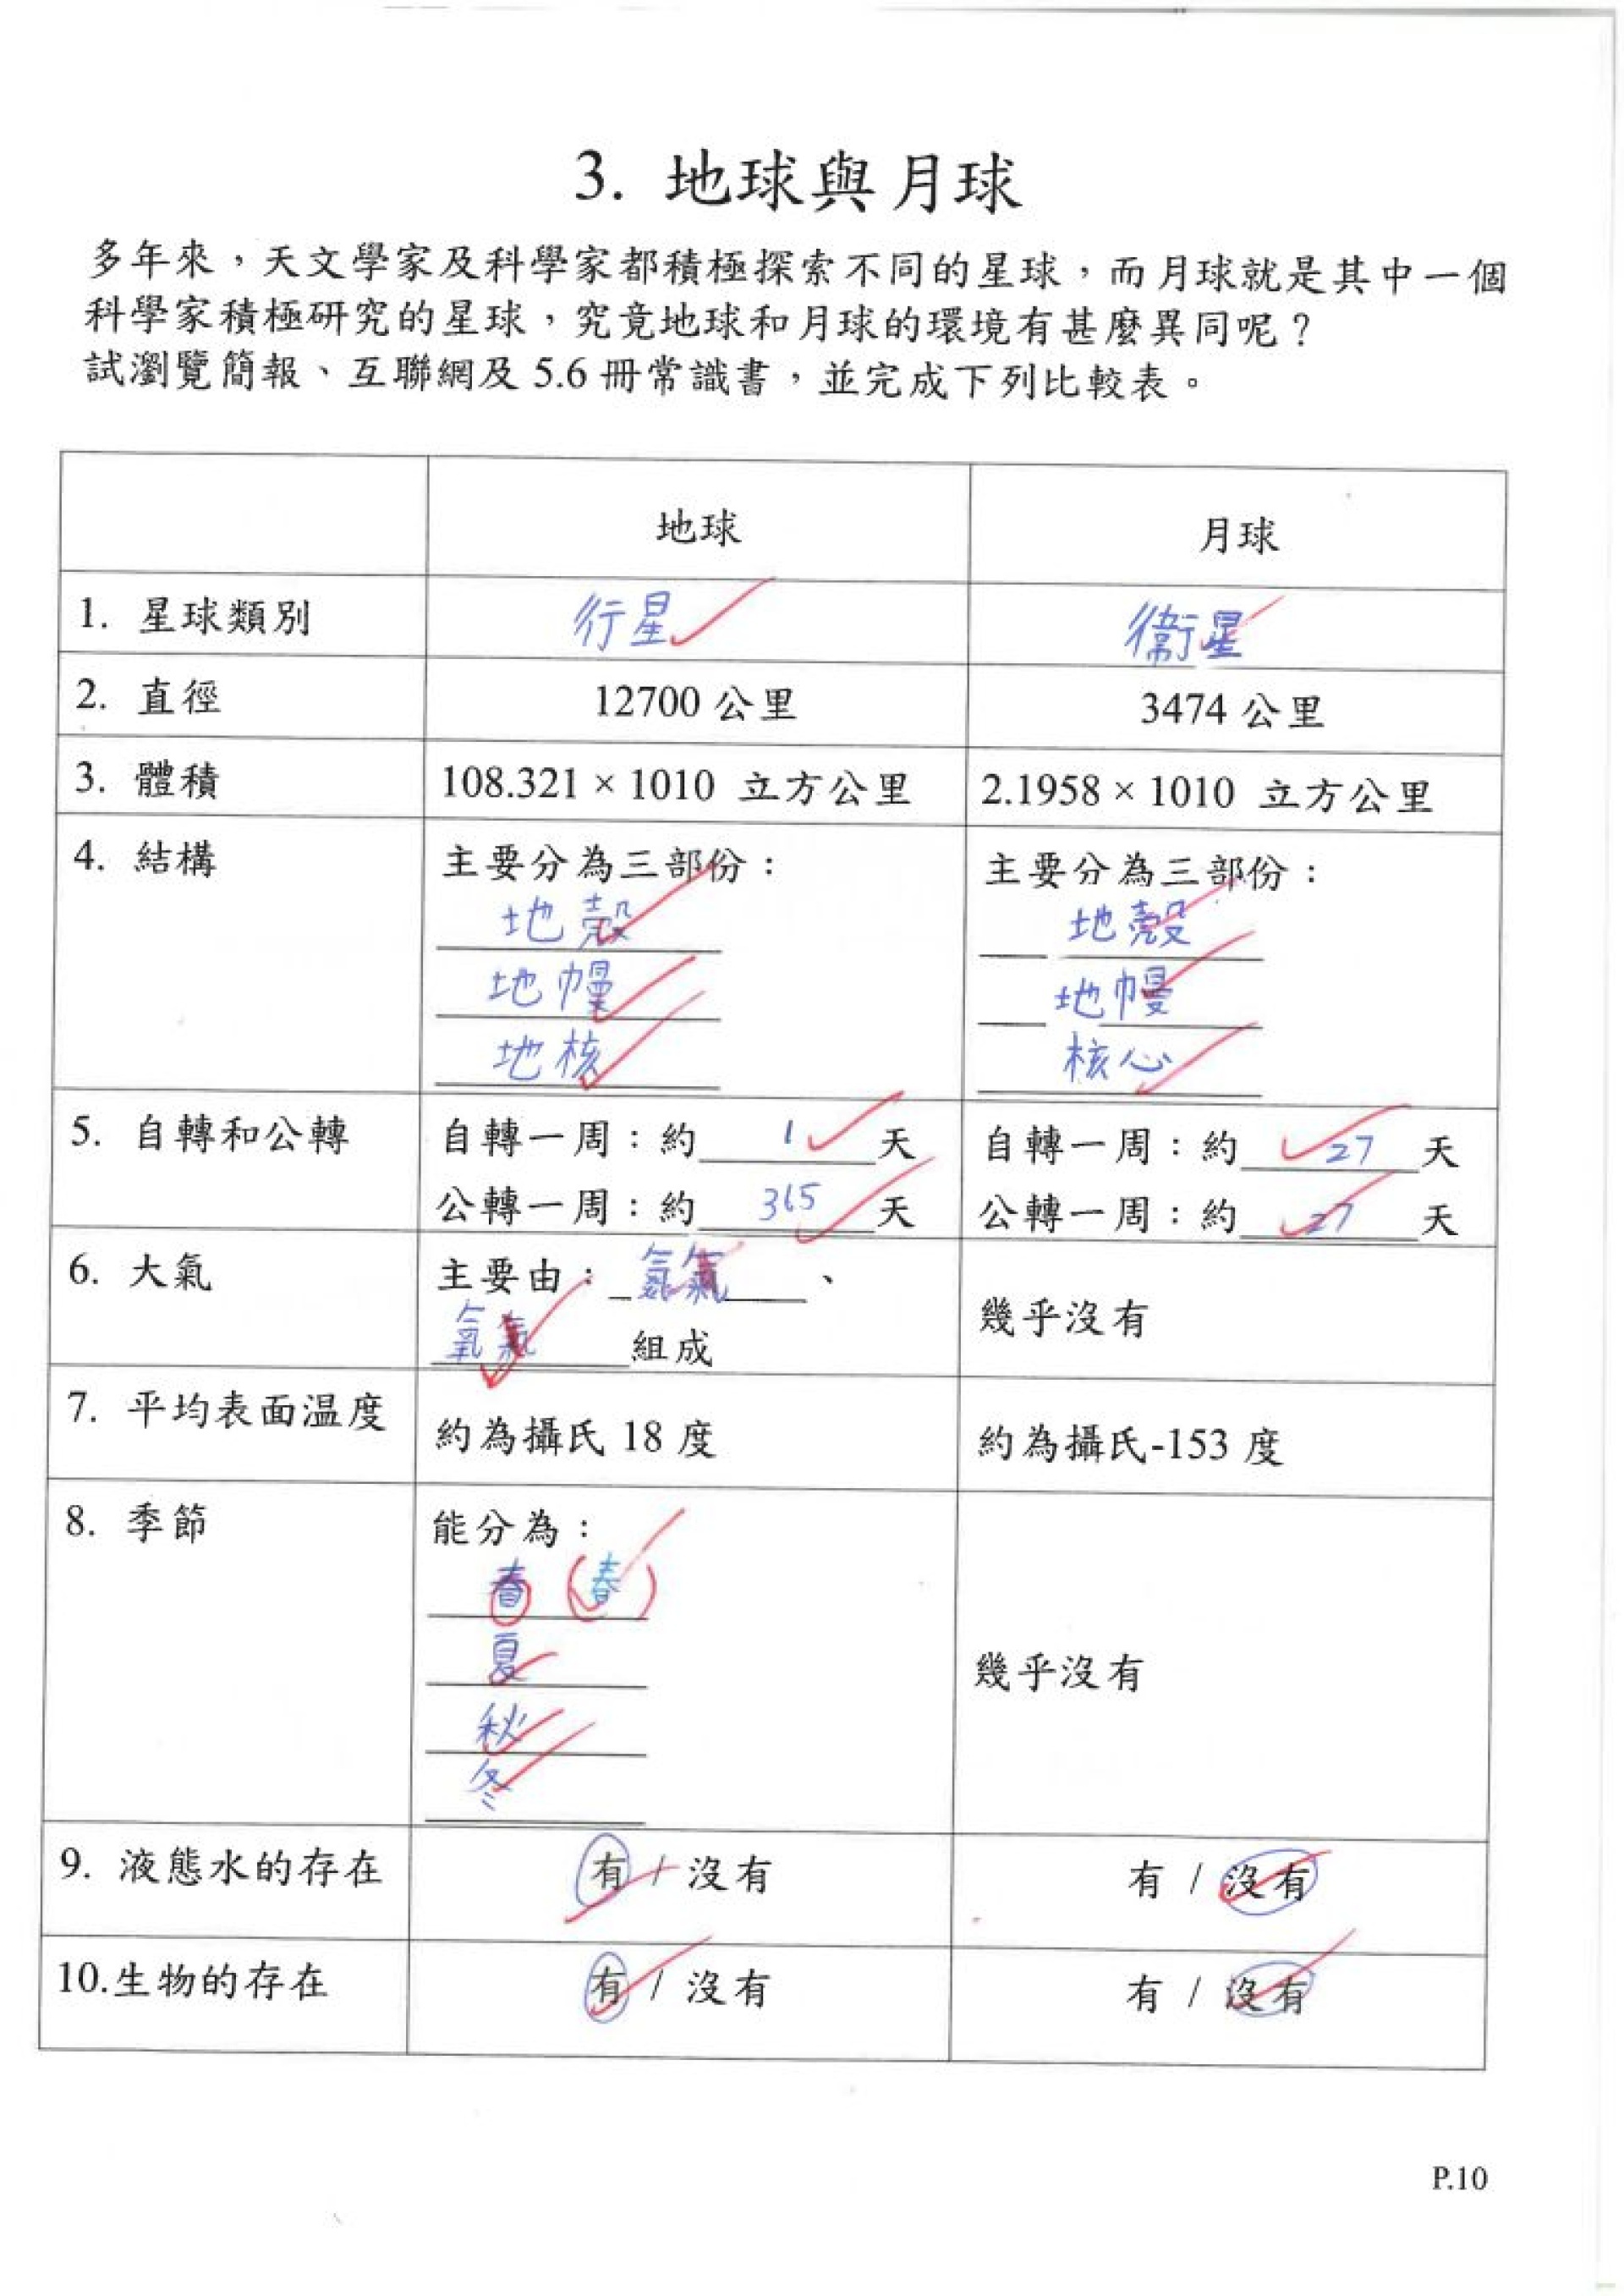 3. 地球與月球
多年來，天文學家及科學家都積極探索不同的星球，而月球就是其中一個
科學家積極研究的星球，究竟地球和月球的環境有甚麼異同呢？
試瀏覽簡報、互聯網及 5.6 冊常識書，並完成下列比較表。
地球 月球
1. 星球類別 行星 衞星
2. 直徑 12700 公里 3474 公里
3. 體積 108.321 × 1010 立方公里 2.1958 × 1010 立方公里
4. 結構 主要分為三部份： 主要分為三部份：
地殼 地殼
地幔 地幔
地核 核心
5. 自轉和公轉 自轉一周：約 1 天 自轉一周：約 27 天
公轉一周：約 365 天 公轉一周：約 27 天
6. 大氣 主要由：氮氣、
氧氣 組成 幾乎沒有
7. 平均表面温度 約為攝氏 18 度 約為攝氏-153 度
8. 季節 能分為：
春 (春)
夏
秋
冬
幾乎沒有
9. 液態水的存在 有 / 沒有 有 / 沒有
10.生物的存在 有 / 沒有 有 / 沒有
P.10